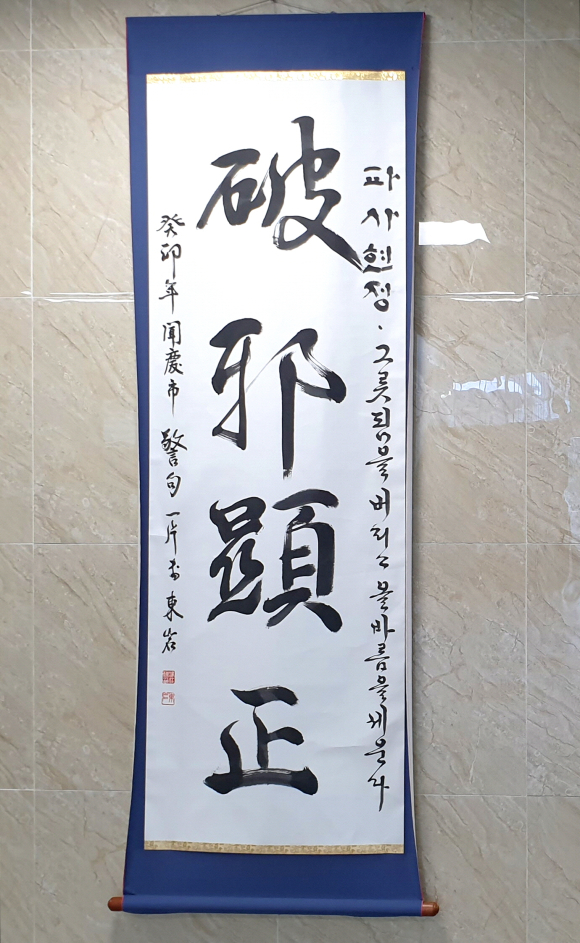 파사현정 · 그릇됨을 버리고 올바름을 세운다
破邪顯正
癸卯年 聞慶市 警句 一片書 東岩